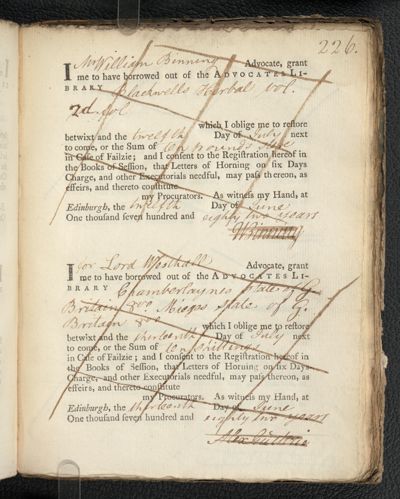 226.
I Mr William Binning Advocate, grant
me to have borrowed out of the ADVOCATES LI-
BRARY Blackwells Herbal vol.
2d. vol
which I oblige me to restore
betwixt and the twelfth Day of July next
to come, or the Sum of ten pounds
in Case of Failzie; and I consent to the Registration hereof in
the Books of Session, that Letters of Horning on six Days
Charge, and other Executorials needful, may pass thereon, as
effeirs, and thereto constitute
my Procurators. As witness my Hand, at
Edinburgh, the twelfth Day of June
One thousand seven hundred and eighty two years
WBinning
I for Lord Westhall Advocate, grant
me to have borrowed out of the ADVOCATES LI-
BRARY Chamberlaynes State of G.
Britain 8vo. Mieges State of G.
Britain 8vo
which I oblige me to restore
betwixt and the thirteenth Day of July next
to come, or the Sum of ten shillings
in Case of Failzie; and I consent to the Registration hereof in
the Books of Session, that Letters of Horning on six Days
Charge, and other Executorials needful, may pass thereon, as
effeirs, and thereto constitute
my Procurators. As witness my Hand, at
Edinburgh, the thirteenth Day of June
One thousand seven hundred and eighty two years
Alex Guthrie